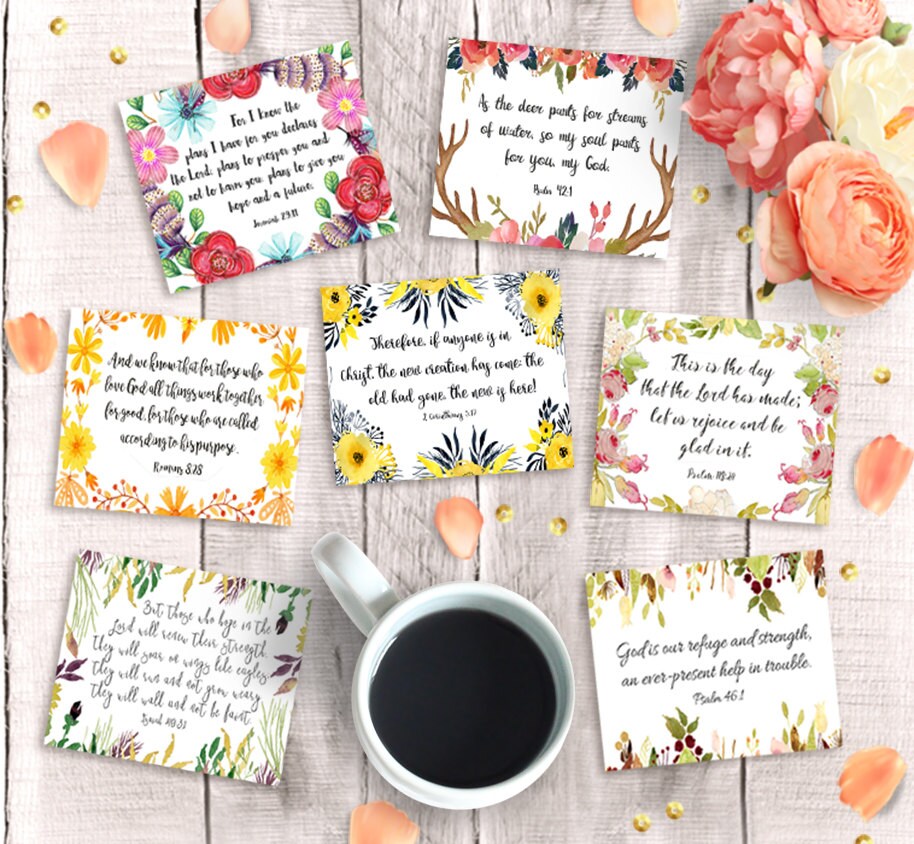 For I know the
plans I have for you declares
the Lord, plans to prosper you and
not to harm you, plans to give you
hope and a future.
Jeremiah 29:11
As the deer pants for streams
of water, so my soul pants
for you, my God.
Psalm 42:1
And we know that for those who
love God all things work together
for good, for those who are called
according to his purpose.
Romans 8:28
Therefore, if anyone is in
Christ, the new creation has come: the
old had gone, the new is here!
2 Corinthians 5:17
This is the day
that the Lord has made;
let us rejoice and be
glad in it.
Psalm 118:24
But those who hope in the
Lord will renew their strength.
They will soar on wings like eagles;
they will run and not grow weary
they will walk and not be faint.
Isaiah 40:31
God is our refuge and strength,
an ever-present help in trouble.
Psalm 46:1